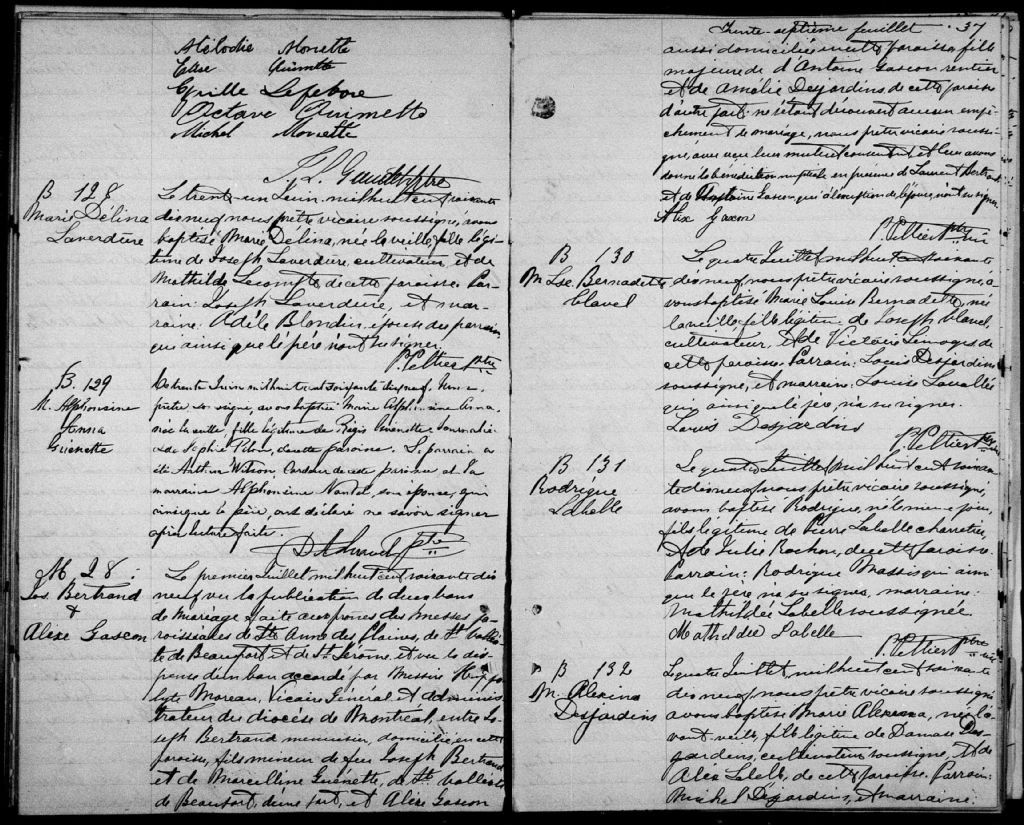 Mélodie Monette
Elise Ouimette
Cyrille Lefebvre
Octave Ouimette
Michel Monette
B 128
Marie Délina
Laverdure
Le trent-un Juin, mil huit cent soixante
dix neuf, nous prêtre vicaire soussigné, avons
baptisé Marie Délina, née la veille, fille légi-
time de Joseph Laverdure, cultivateur, et de
Mathilde Lecompte de cette paroisse. Par-
rain: Joseph Laverdure, et mar-
raine: Adèle Blondin, épouse du parrain
qui ainsi que le père n'ont su signer.
P. Peltier Ptre
B. 129
M. Alphonsine
Anna
Guénette
Le trente Juin mil huit cent soixante dix neuf, Nous
prêtre soussigné, avons baptisé Marie Alphonsine Anna,
née la veille, fille légitime de Régis Guénette
et de Sophie Pilon, de cette paroisse. Le parrain a
été Arthur Wilson de cette paroisse et la
marraine Alphonsine Nantel, son épouse, qui
ainsi que le père, ont déclaré ne savoir signer
après lecture faite.
M 28:
Jos. Bertrand
&
Alixe Gascon
Le premier Juillet mil huit cent soixante dix
neuf, vu la publication de deux bans
de mariage faite aux prônes des messes pa-
roissiales de Ste Anne des Plaines, de St
de Beaufort, et de St. Jérôme, et vu la dis-
pense d'un ban accordé par Messire Hyppo-
lyte Moreau, Vicaire Général & adminis
trateur du diocèse de Montréal, entre Jo-
seph Bertrand menuisier, domicilié en cette
paroisse, fils mineur de feu Joseph Bertrand
et de Marcelline Guénette, de St
de Beaufort, d'une part, et Alixe Gascon
Trente-septième feuillet . 37
aussi domiciliée en cette paroisse, fille
majeure de d'Antoine Gascon rentier
et de Amélie Desjardins de cette paroisse
d'autre part: ne s'étant découvert aucun empê-
chement le mariage, nous prêtre vicaire soussi-
gné, avons reçu leur mutuel consentement et leur avons
donné la bénédiction nuptiale en présence de Laurent Bertrand
et de Antoine Gascon qui à l'exception de l'épouse, n'ont su signer.
Alix Gascon
P. Peltier Ptre vic
B 130
M Lse. Bernadette
Clavel
Le quatre Juillet, mil huit cent soixante
dix neuf, nous prêtre vicaire soussigné, a-
vons baptisé Marie Louise Bernadette, née
la veille, fille légitime de Joseph Clavel,
cultivateur, et de Victoire Limoges de
cette paroisse. Parrain: Louis Desjardins
soussigné, et marraine: Louise Lavallée
qui ainsi que le père, n'a su signer.
Louis Desjardins
P. Peltier Ptre vic
B 131
Rodrigue
Labelle
Le quatre Juillet, mil huit cent soixan
te dix neuf, nous prêtre vicaire soussigné,
avons baptisé Rodrigue, né le même jour,
fils légitime de Pierre Labelle charretier,
& de Julie Rochon, de cette paroisse.
Parrain: Rodrigue Massis qui ainsi
que le père n'a su signer, marraine:
Mathildée Labelle soussignée
Mathildée Labelle
P. Peltier Ptre vic
B 132
M. Alexina
Desjardins
Le quatre Juillet, mil huit cent soixante
dix neuf, nous prêtre vicaire soussigné
avons baptisé Marie Alexina, née l'a-
vant veille, fille légitime de Damase Des-
jardins, cultivateur soussigné, et de
Alix Labelle, de cette paroisse. Parrain:
Michel Desjardins, et marraine: